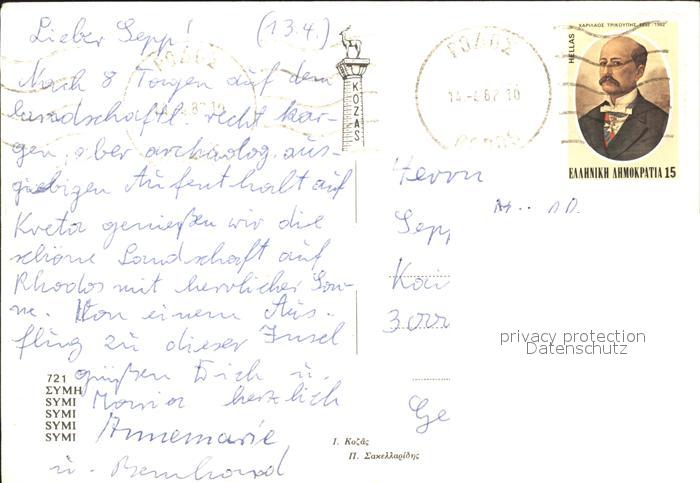 Lieber Sepp! (13.4.)
Nach 8 Tagen auf dem
landschaftl. recht kar-
gen, aber archäolog. aus-
giebigen Aufenthalt auf
Kreta genießen wir die
schöne Landschaft auf
Rhodos mit herrlicher Son-
ne. Von einem Aus-
flug zu dieser Insel
grüßen Dich u.
Maria herzlich
Annemarie
u. Bernhard
721
ΣΥΜΗ
SYMI
SYMI
SYMI
SYMI
KOZAS
Ι. Κοζάς
Π. Σακελλαρίδης
ΡΟΔΟΣ
14.-4.82 10
ΧΑΡΙΛΑΟΣ ΤΡΙΚΟΥΠΗΣ
HELLAS
ΕΛΛΗΝΙΚΗ ΔΗΜΟΚΡΑΤΙΑ 15
Herrn
Sepp
privacy protection
Datenschutz